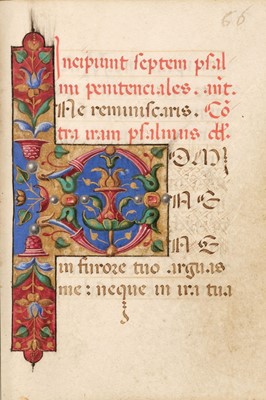 66
Incipiunt septem psal
mi penitenciales. añt.
Ne reminiscaris. Cõ
tra iram psalmus dd.
DOMI
NE
NE
in furore tuo arguas
me: neque in ira tua